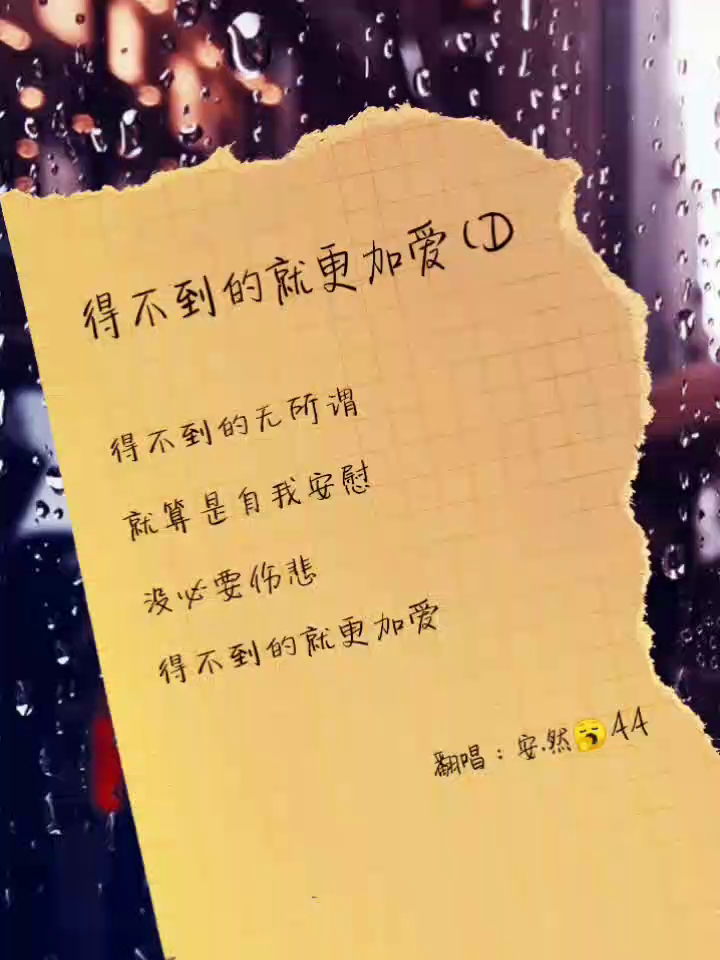 得不到的就更加爱(D
得不到的无所谓
就算是自我安慰
没必要伤悲
得不到的就更加爱
翻唱：安.然😪44